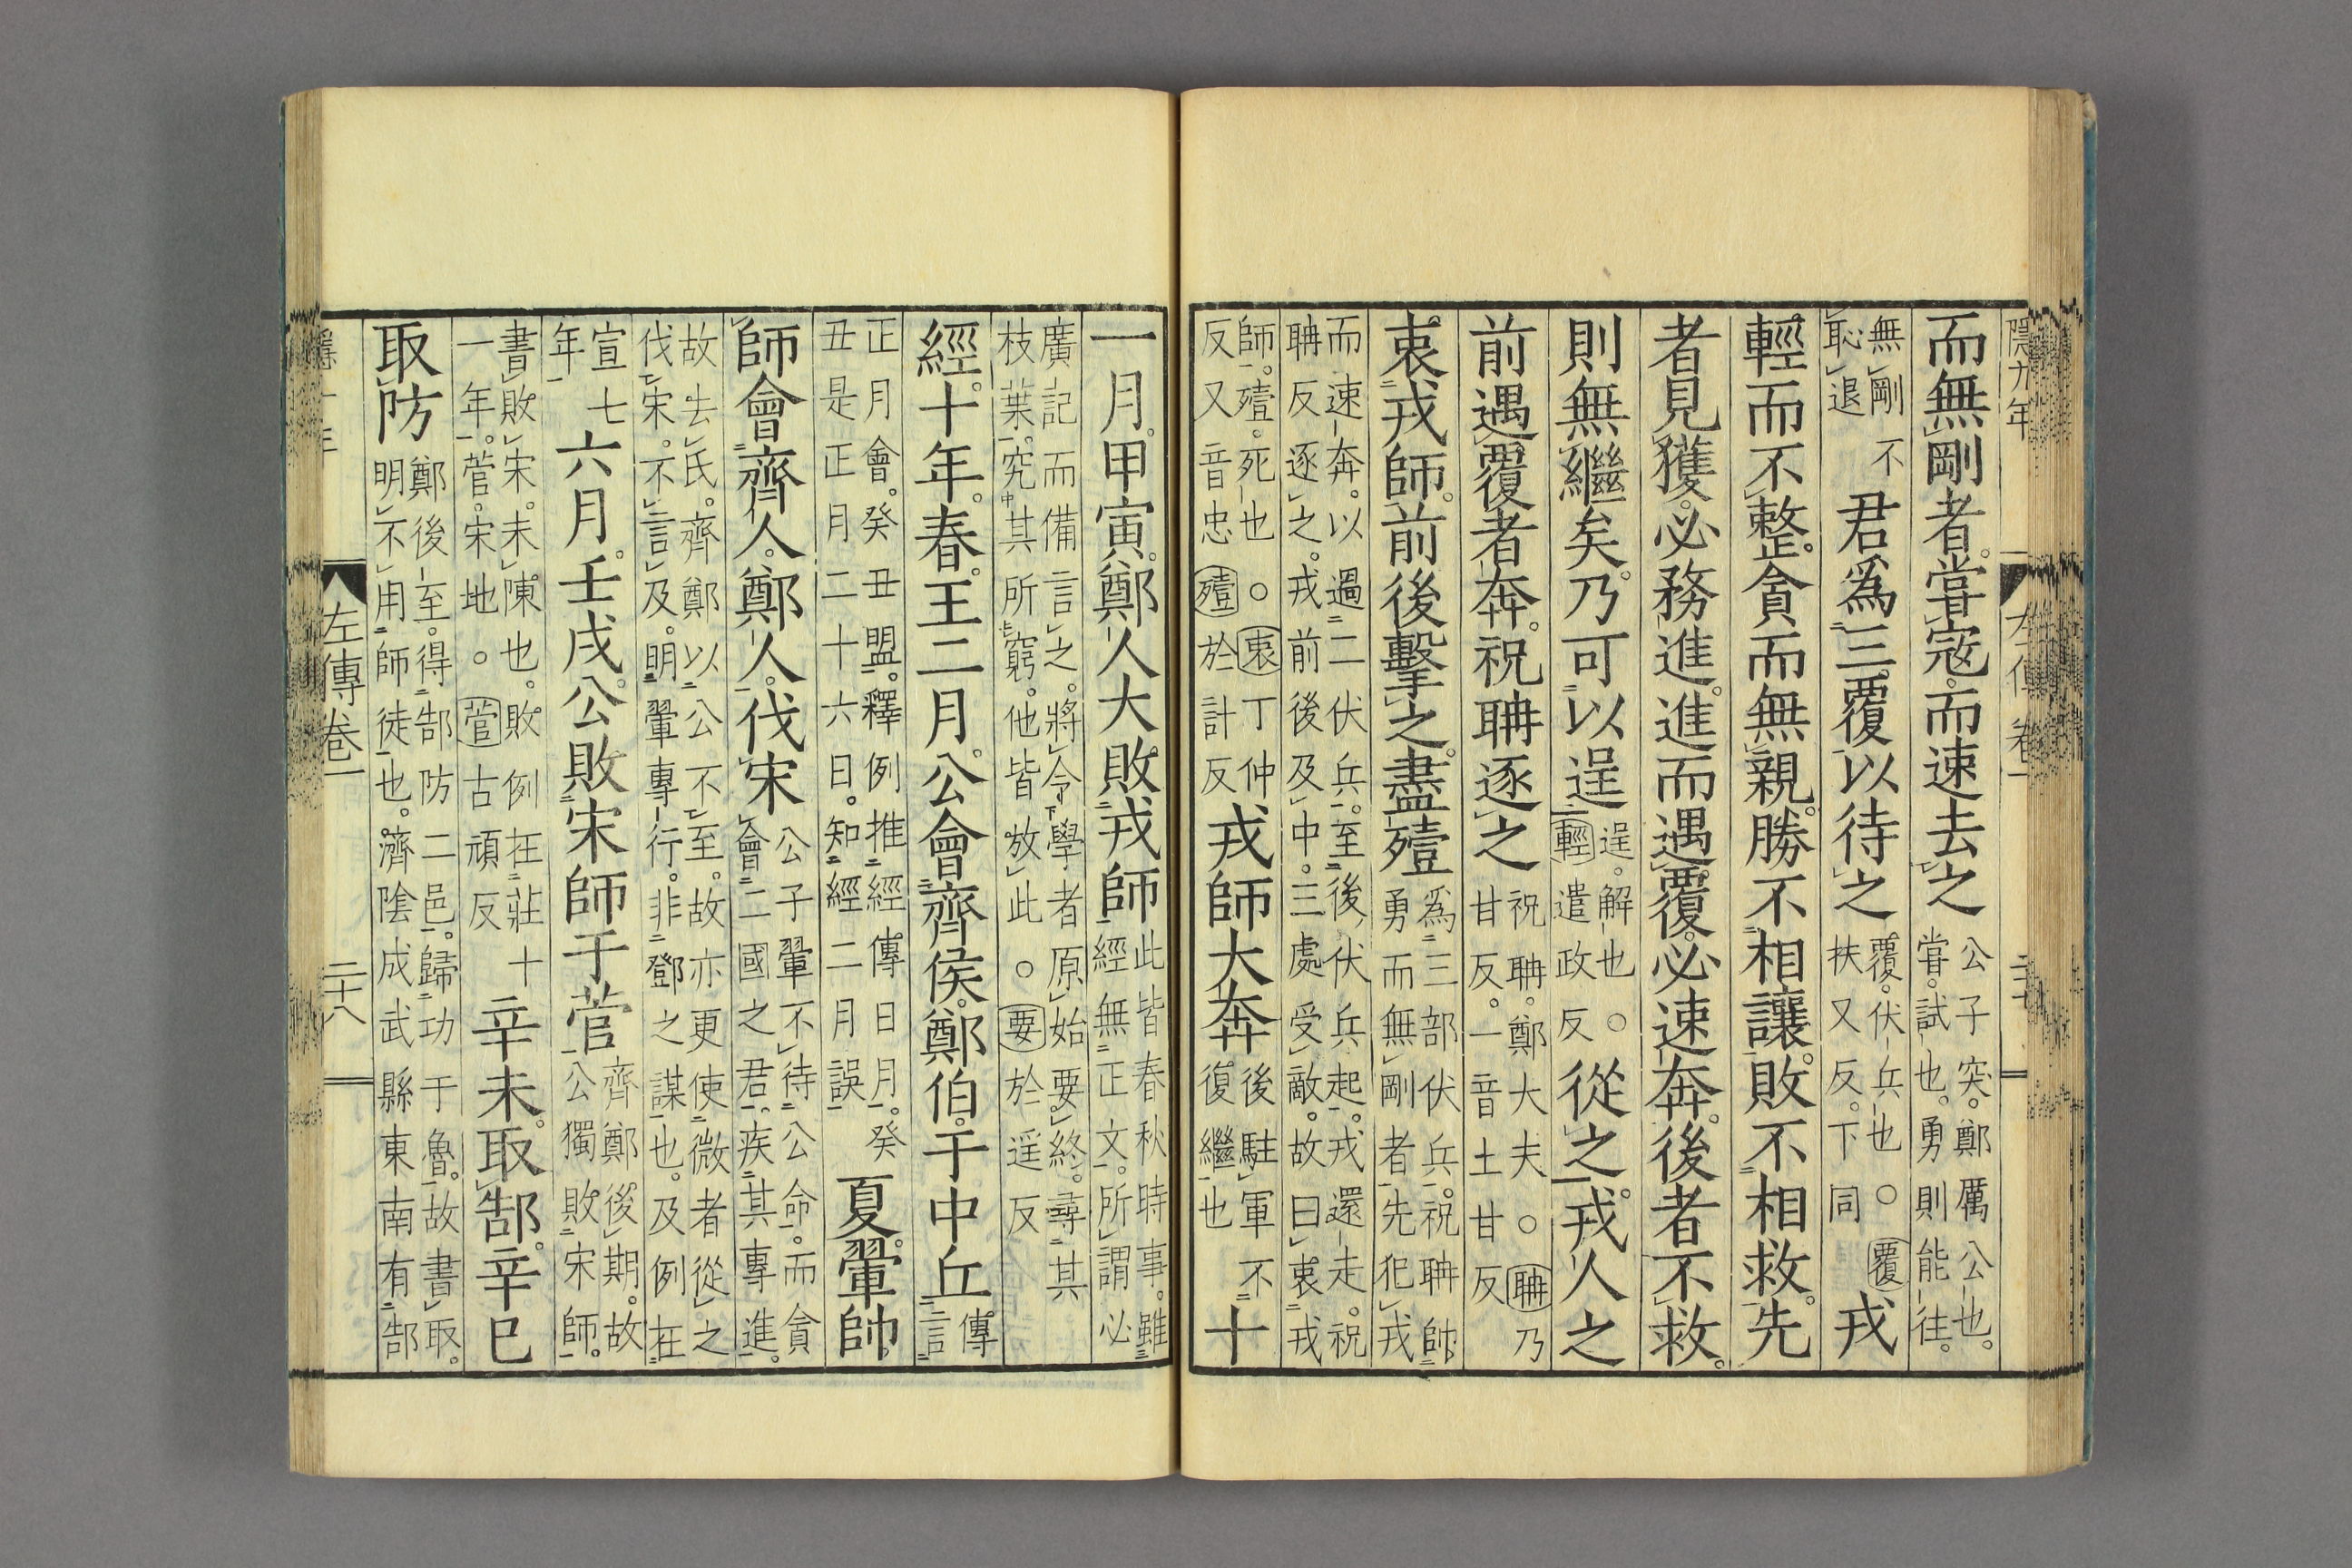 而無剛者。嘗寇。而速去之公子突。鄭厲公也。嘗。試也。勇則能往。
無剛不恥退君爲三覆以待之覆。伏兵也○覆扶又反。下同戎
輕而不整。貪而無親。勝不相讓。敗不相救。先
者見獲。必務進。進而遇覆。必速奔。後者不救。
則無繼矣。乃可以逞逞。解也○輕遣政反從之。戎人之
前遇覆者奔。祝聃逐之祝聃。鄭大夫○聃乃甘反。一音土甘反
衷戎師。前後擊之。盡殪爲三部伏兵。祝聃帥勇而無剛者。先犯戎
而速奔。以過二伏兵。至後伏兵起。戎還走。祝聃反逐之。戎前後及中。三處受敵。故曰衷戎
師。殪。死也○衷丁仲反又音忠殪於計反戎師大奔後駐軍不復繼也十
一月。甲寅。鄭人大敗戎師此皆春秋時事。雖經無正文。所謂必
廣記而備言之。將令學者原始要終。尋其枝葉。究其所窮。他皆放此○要於遥反
經。十年。春。王二月。公會齊侯。鄭伯。于中丘傳言
正月會。癸丑盟。釋例推經傳日月。癸丑是正月二十六日。知經二月誤夏。翬帥
師會齊人。鄭人。伐宋公子翬不待公命。而貪會二國之君。疾其專進。
故去氏。齊鄭以公不至。故亦更使微者從之伐宋。不言及。明翬專行。非鄧之謀也。及例在
宣七年六月。壬戌。公敗宋師于菅齊鄭後期。故公獨敗宋師。
書敗宋。未陳也。敗例在莊十一年。菅。宋地○菅古頑反辛未。取郜。辛巳
取防鄭後至。得郜防二邑。歸功于魯。故書取。明不用師徒也。濟陰成武縣東南有郜
左傳卷一 二十八